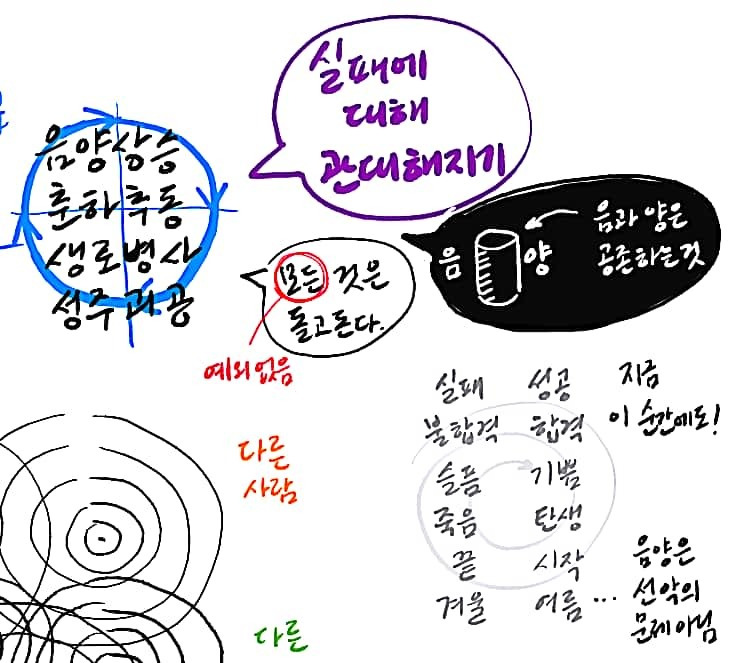 실패에
대해
관대해지기
음양상승
춘하추동
생로병사
성주괴공
음 양
음과 양은
공존하는것
모든 것은
돌고돈다.
예외없음
실패 성공
불합격 합격
슬픔 기쁨
죽음 탄생
끝 시작
겨울 여름 ...
지금
이 순간에도!
음양은
선악의
문제아님
다른
사람
다른